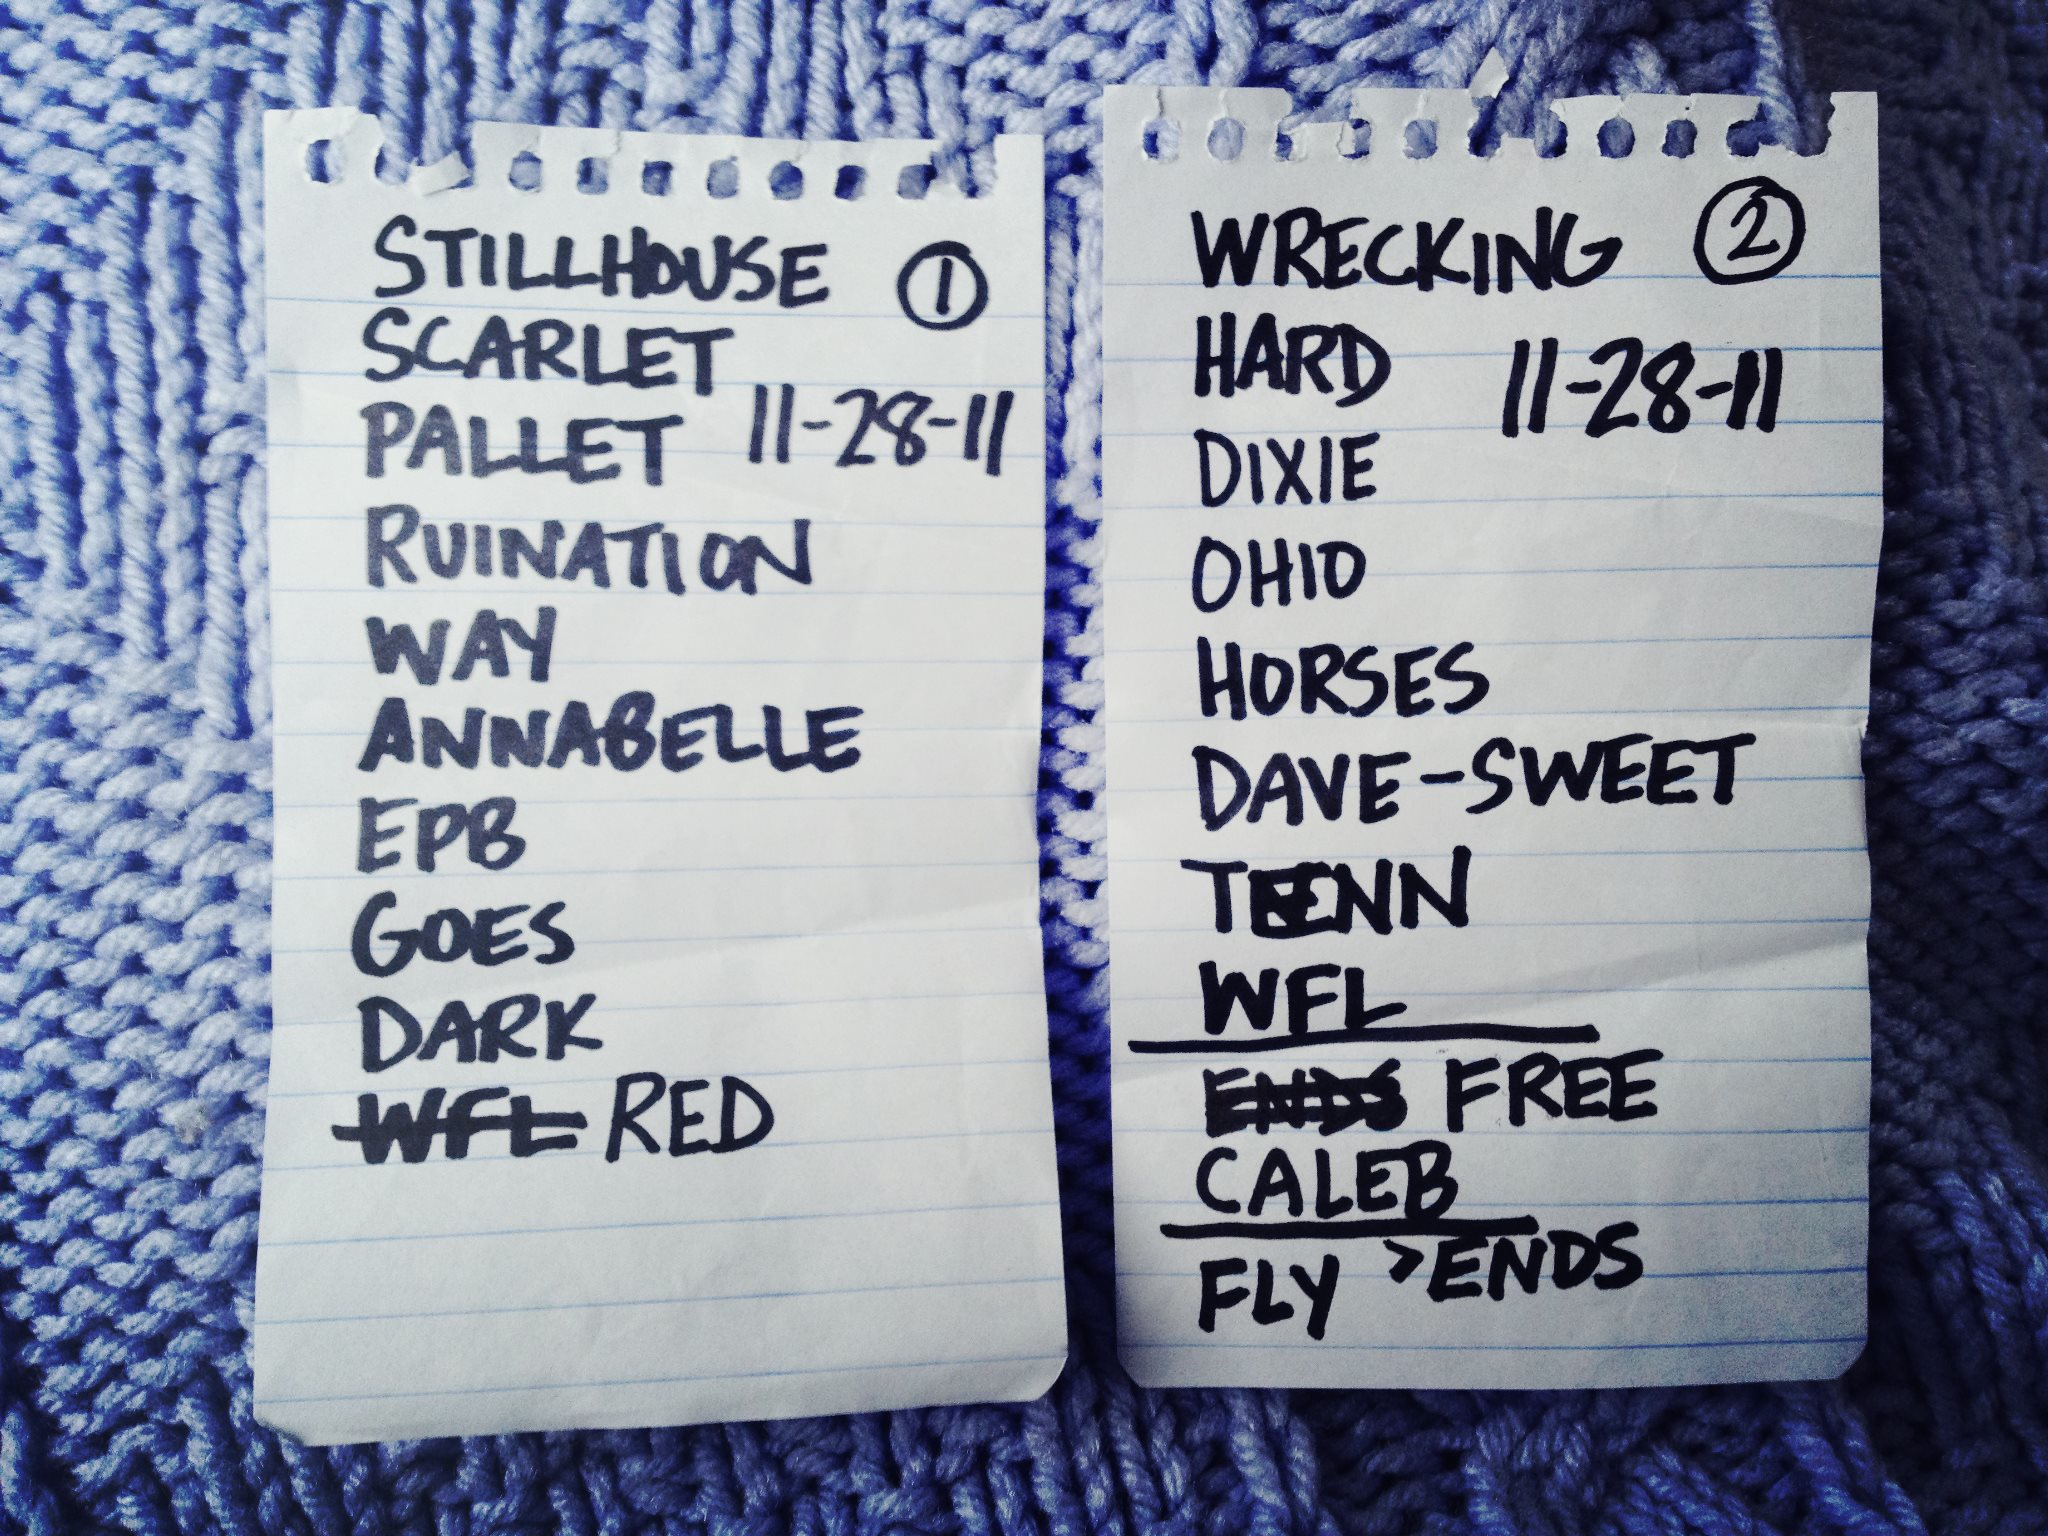 STILLHOUSE ①
SCARLET
PALLET 11-28-11
RUINATION
WAY
ANNABELLE
EPB
GOES
DARK
WFL RED
WRECKING ②
HARD 11-28-11
DIXIE
OHIO
HORSES
DAVE-SWEET
TENN
WFL
ENDS FREE
CALEB
FLY >ENDS